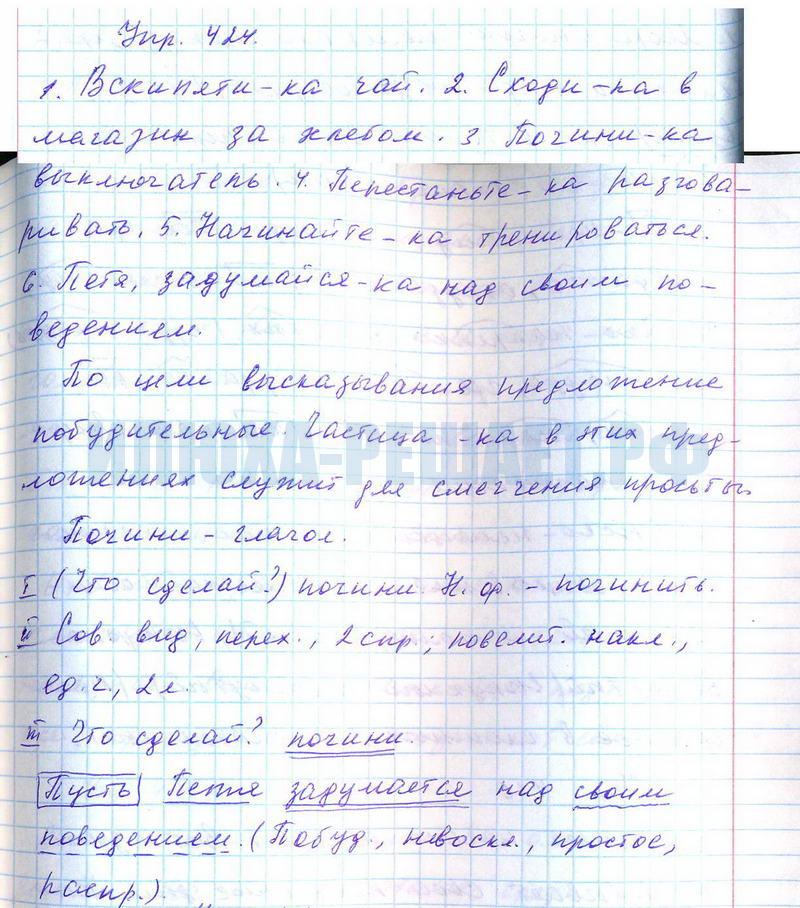 Упр. 424.
1. Вскипяти-ка чай. 2. Сходи-ка в
магазин за хлебом. 3. Почини-ка
выключатель. 4. Перестаньте-ка разгова-
ривать. 5. Начинайте-ка тренироваться.
6. Петя, задумайся-ка над своим по-
ведением.
По цели высказывания предложение
побудительные. Частица -ка в этих пред-
ложениях служит для смягчения просьбы.
ШПОХА-РЕШАЕТ.РФ
Почини - глагол.
I (Что сделай?) почини. Н. ф. - починить.
II Сов. вид, перех., 2 спр.; повелит. накл.,
ед. ч., 2 л.
III Что сделай? почини.
Пусть Петя задумается над своим
поведением. (Побуд., невоскл., простое,
распр.).